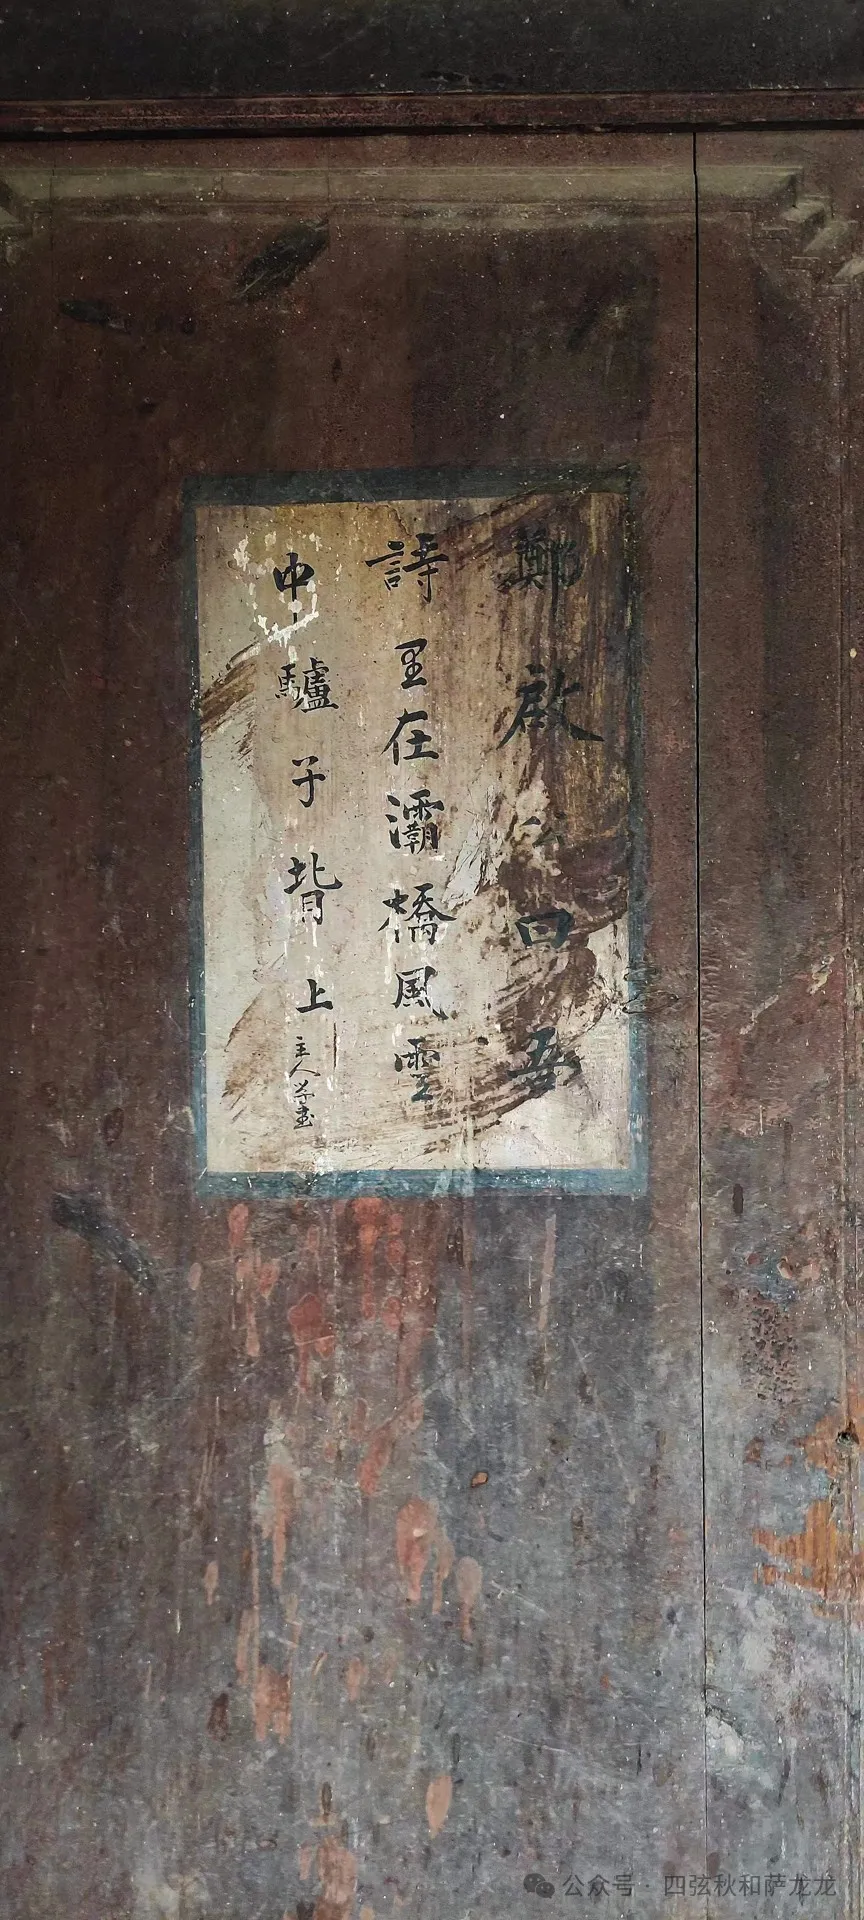 鄭啟公曰吾
詩里在灞橋風雪
中驢子背上
主人学書
公众号·四弦秋和萨龙龙